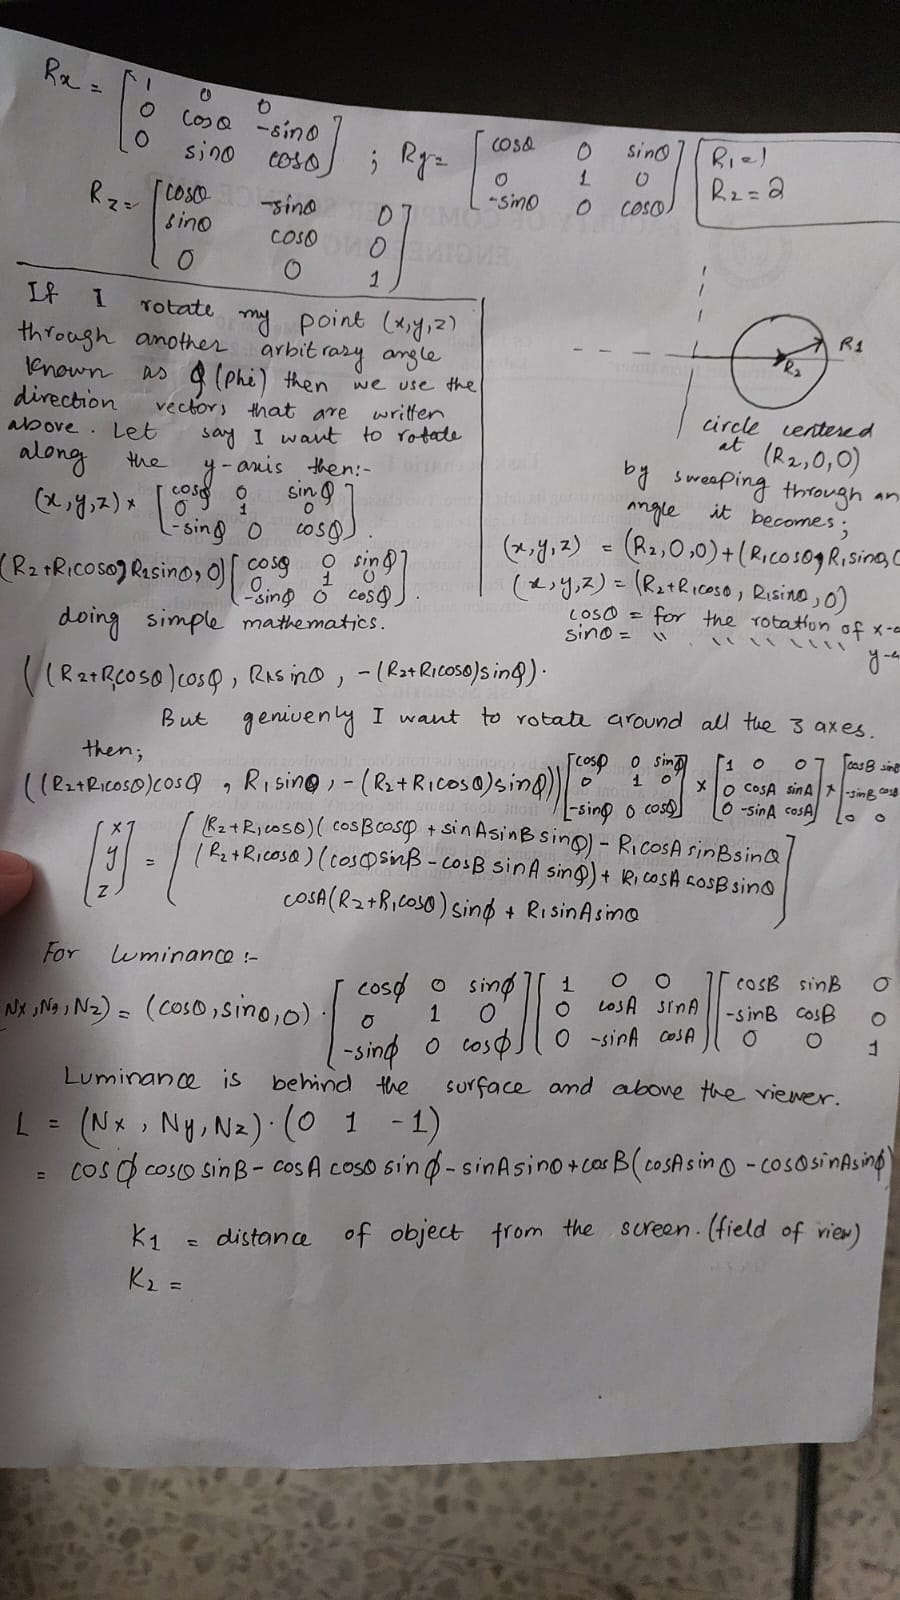 Rx = [1 0 0
0 cosθ -sinθ
0 sinθ cosθ] ; Ry = [cosθ 0 sinθ
0 1 0
-sinθ 0 cosθ]
R1=1
R2=2
Rz = [cosθ -sinθ 0
sinθ cosθ 0
0 0 1]
If I rotate my point (x,y,z)
through another arbitrary angle
known as φ (phi) then we use the
direction vectors that are written
above. Let say I want to rotate
along the y-axis then:-
(x,y,z) * [cosφ 0 sinφ
0 1 0
-sinφ 0 cosφ].
(R2+R1cosθ, R1sinθ, 0) [cosφ 0 sinφ
0 1 0
-sinφ 0 cosφ].
doing simple mathematics.
R1
R2
circle centered
at (R2,0,0)
by sweeping through an
angle it becomes;
(x,y,z) = (R2,0,0)+(R1cosθ, R1sinθ,
(x,y,z) = (R2+R1cosθ, R1sinθ, 0)
cosθ = for the rotation of x-a
sinθ = " " " " " " "
y-a
((R2+R1cosθ)cosφ, R1sinθ, -(R2+R1cosθ)sinφ).
But genivenly I want to rotate around all the 3 axes.
then;
((R2+R1cosθ)cosφ, R1sinθ, -(R2+R1cosθ)sinφ)) [cosφ 0 sinφ
0 1 0
-sinφ 0 cosφ] × [1 0 0
0 cosA sinA
0 -sinA cosA] * [cosB sinB
-sinB cosB
0 0
[x
y
z] = [(R2+R1cosθ)(cosBcosφ + sinAsinBsinφ) - R1cosAsinBsinθ
(R2+R1cosθ)(cosφsinB - cosBsinAsinφ) + R1cosAcosBsinθ
cosA(R2+R1cosθ)sinφ + R1sinAsinθ]
For luminance :-
Nx,Ny,Nz) = (cosθ,sinθ,0). [cosφ 0 sinφ
0 1 0
-sinφ 0 cosφ] [1 0 0
0 cosA sinA
0 -sinA cosA] [cosB sinB 0
-sinB cosB 0
0 0 1
Luminance is behind the surface and above the viewer.
L = (Nx, Ny, Nz)·(0 1 -1)
= cosφcosθsinB - cosAcosθsinφ - sinAsinθ + cosB(cosAsinθ - cosθsinAsinφ)
K1 = distance of object from the screen. (field of view)
K2 =